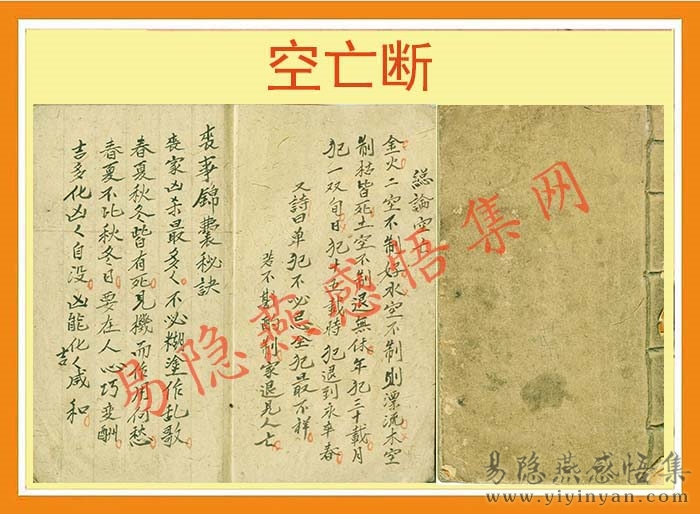 空亡断
總論空亡
金火二空不制好水空不制則漂流木空
制枯皆死土空不制退無休年犯三十載月
犯一双旬日犯十五載時犯退到永年春
又詩曰单犯不必忌全犯最不祥
若不斟酌制家退見人亡
喪事錦囊秘訣
喪家凶杀最多多不必糊塗作乱歌
春夏秋冬皆有死見機而作用何愁
春夏不比秋冬日要在人心巧变酬
吉多化凶凶自没凶能化吉咸和
易隐燕感悟集网
易隐燕感悟集
www.yiyinyan.com